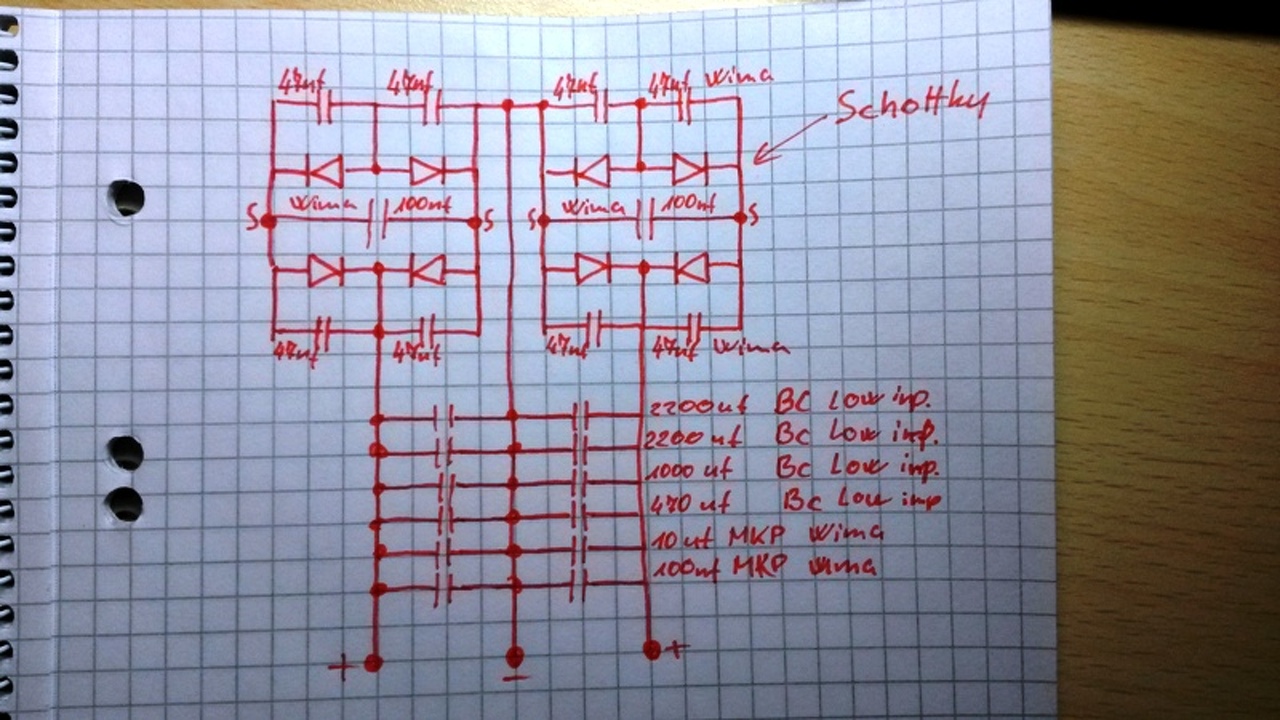 47nf 47nf 47nf 47nf Wima
Schottky
Wima 100nf Wima 100nf
S S S S
47nf 47nf 47nf 47nf Wima
2200uf BC Low imp.
2200uf BC Low imp.
1000uf BC Low imp.
470uf BC Low imp
10uf MKP Wima
100nf MKP Wima
+ - +